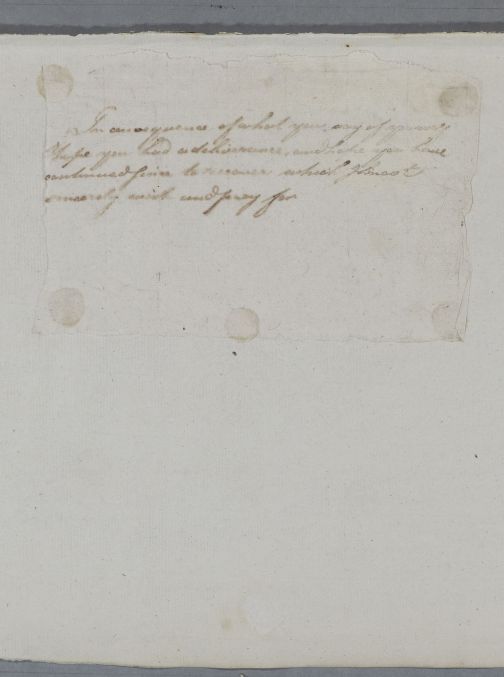 In consequence of what you say of your
Wife you had a deliverance, and hope you have
continued since to recover which I most
sincerely wish and pray for